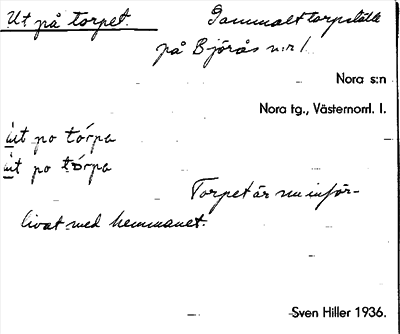 Ut på torpet.
Gammalt torpställe
på Björås n:r 1.
Nora s:n
Nora tg., Västernorrl. l.
út po tórpa
ùt po tòrpa
Torpet är nu inför-
livat med hemmanet.
Sven Hiller 1936.